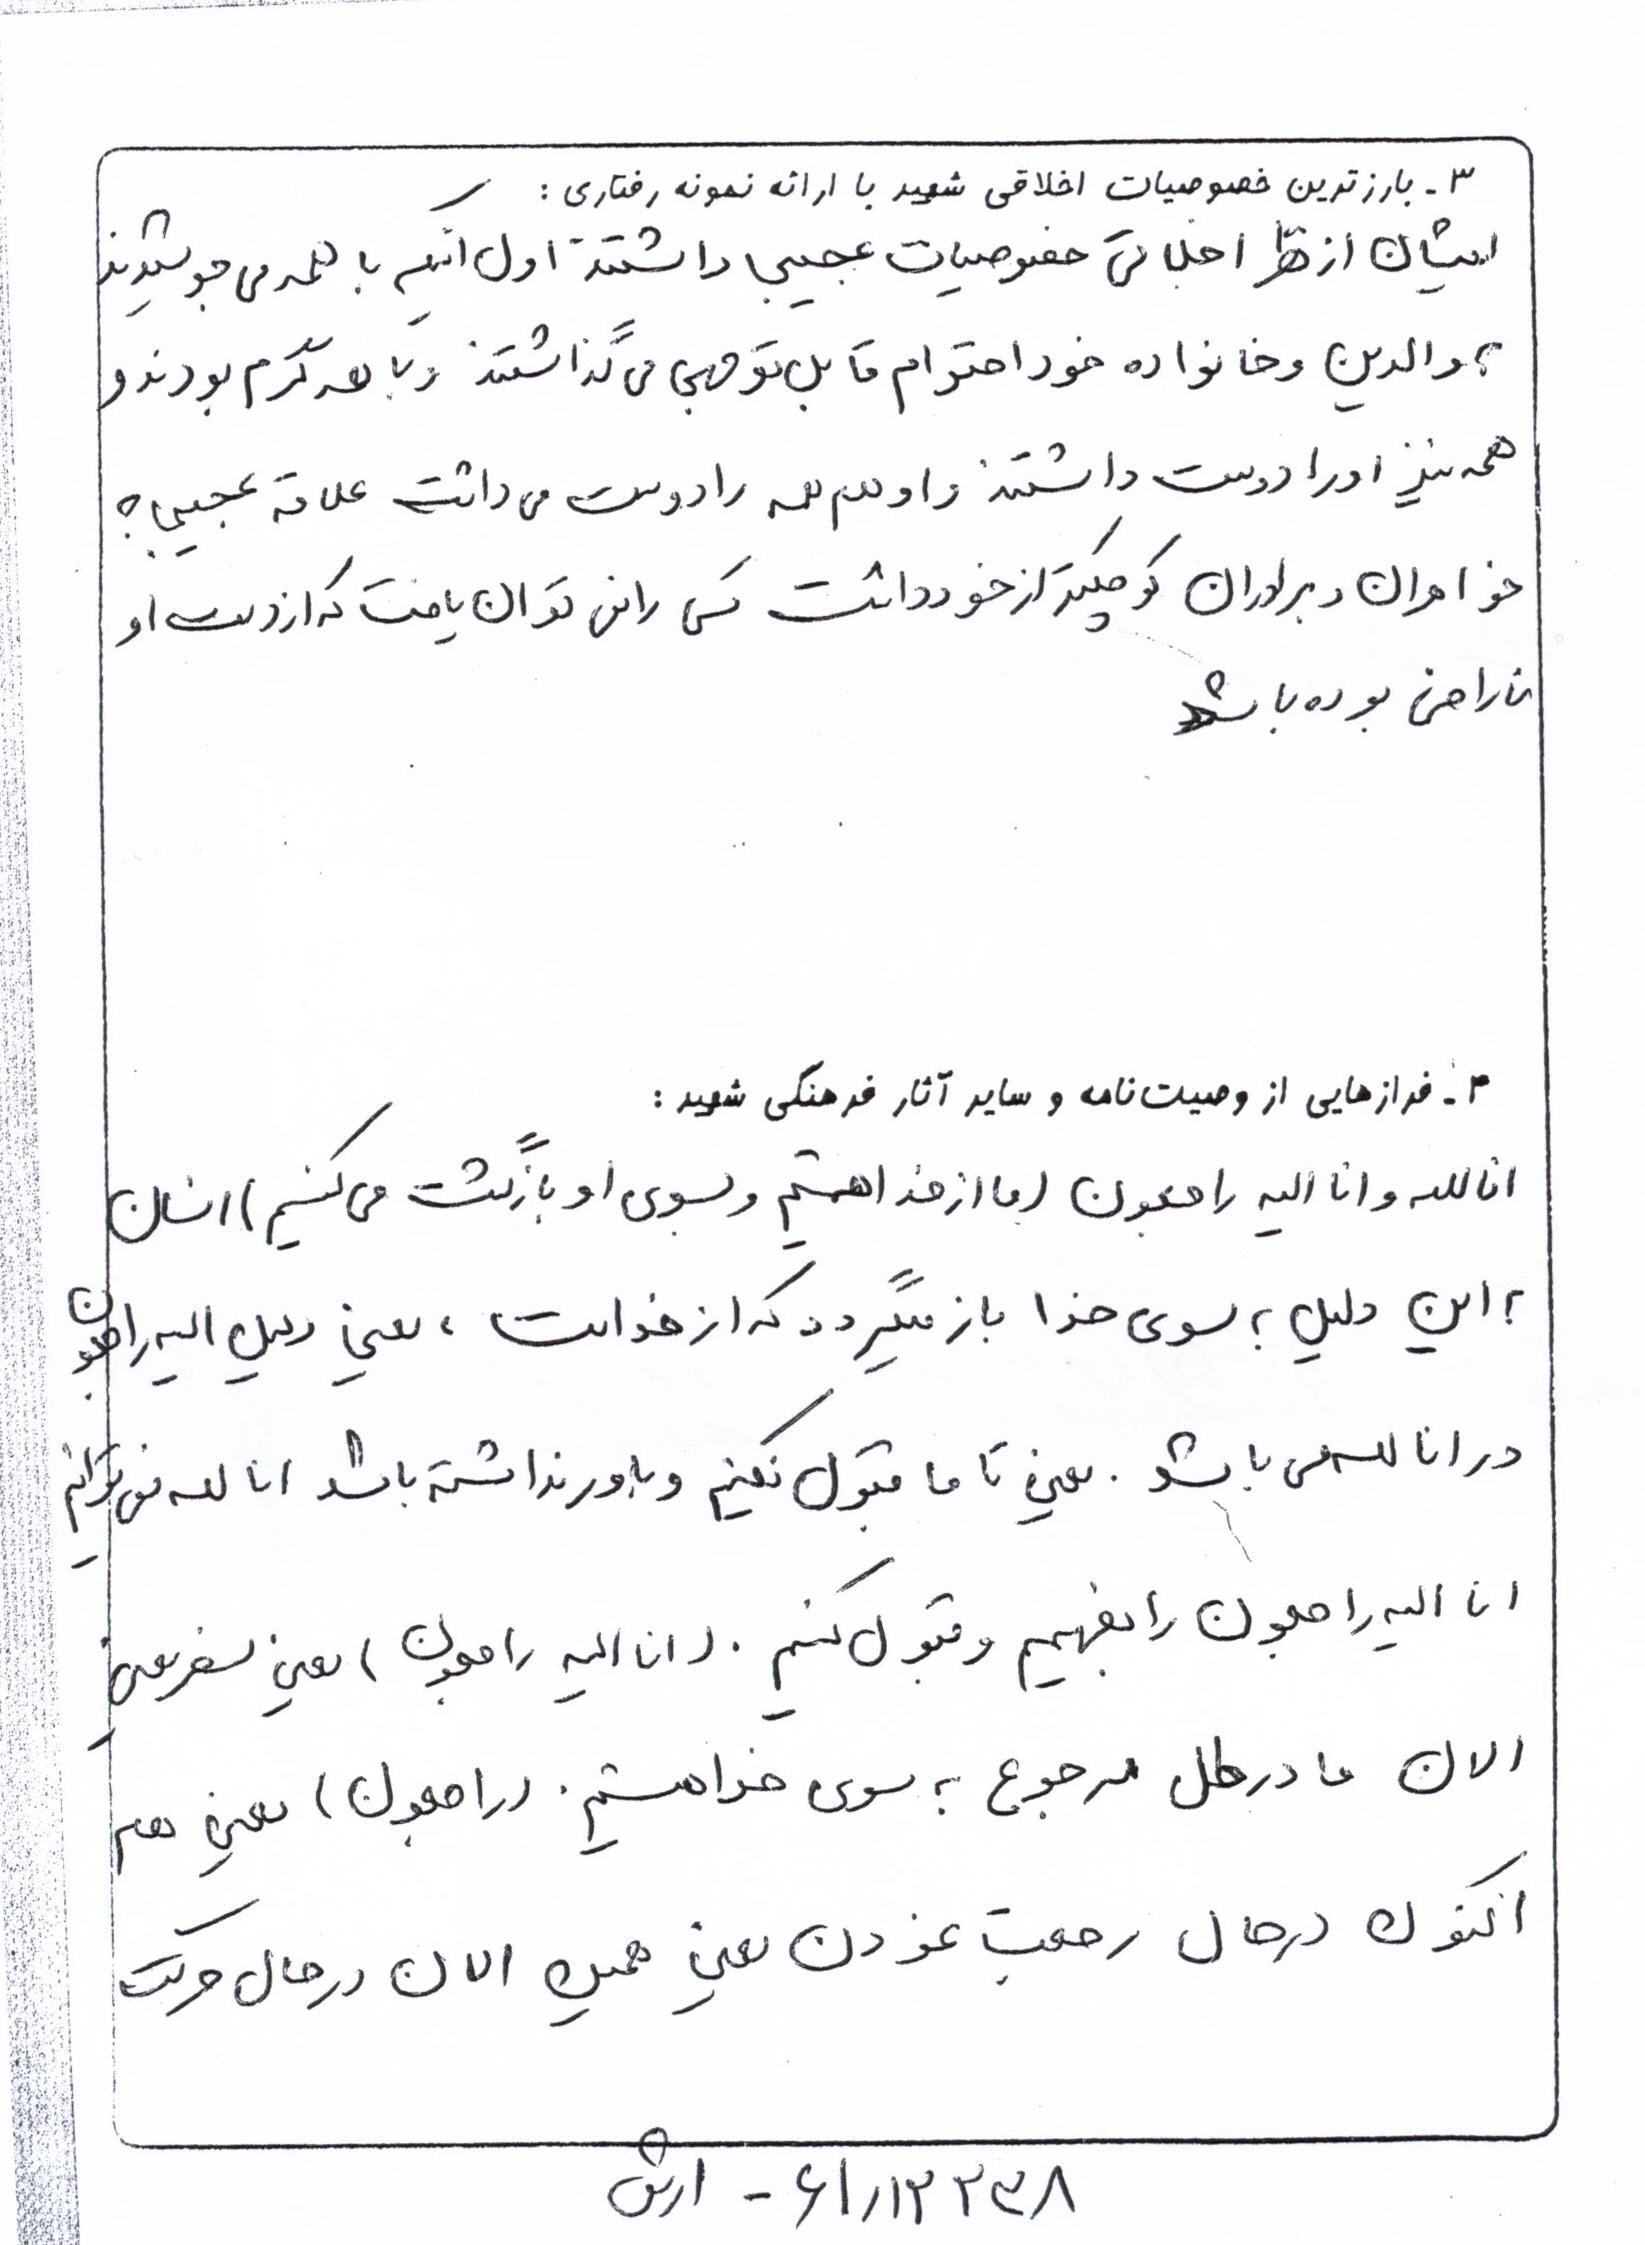 ۳ـ بارزترین خصوصیات اخلاقی شهید با ارائه نمونه رفتاری :
ایشان از نظر اخلاقی خصوصیات عجیبی داشتند اول آنکه با همه می جوشیدند
به والدین و خانواده خود احترام قابل توجهی می گذاشتند و با همه گرم بودند و
همه نیز او را دوست داشتند و او هم همه را دوست می داشت علاقه عجیبی به
خواهران و برادران کوچکتر از خود داشت کسی را نمی توان یافت که از دست او
ناراضی بوده باشد
۴ـ فرازهایی از وصیت‌نامه و سایر آثار فرهنگی شهید :
انا لله و انا الیه راجعون (ما از خدا هستیم و بسوی او بازگشت می کنیم) انسان
به این دلیل به سوی خدا باز میگردد که از خداست ، یعنی دلیل الیه راجعون
در انا لله می باشد . یعنی تا ما قبول نکنیم و باور نداشته باشد انا لله نمی توانیم
انا الیه راجعون را بفهمیم و قبول کنیم . (انا الیه راجعون) یعنی سفر یعنی
الان ما در حال رجوع به سوی خدا هستیم . (راجعون) یعنی هم
اکنون در حال رجعت نمودن یعنی همین الان در حال حرکت
۶۱/۱۲۲۳۸ - ارتش